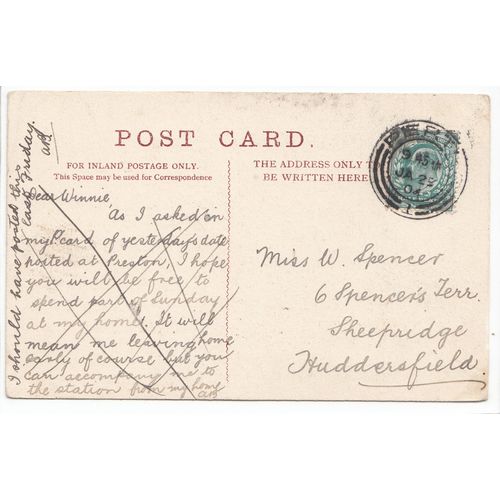 POST CARD.
FOR INLAND POSTAGE ONLY.
This Space may be used for Correspondence
THE ADDRESS ONLY T
BE WRITTEN HERE
PERT
9 45
JA 2
04
Dear Winnie
As I asked on
my P. card of yesterday's date
posted at Preston. I hope
you will be free to
spend part of Sunday
at my home. It will
mean me leaving home
early of course but you
can accompany me to
the station from my home
AB
I should have posted this
last Friday.
AB
Miss W. Spencer
6 Spencer's Terr.
Sheepridge
Huddersfield